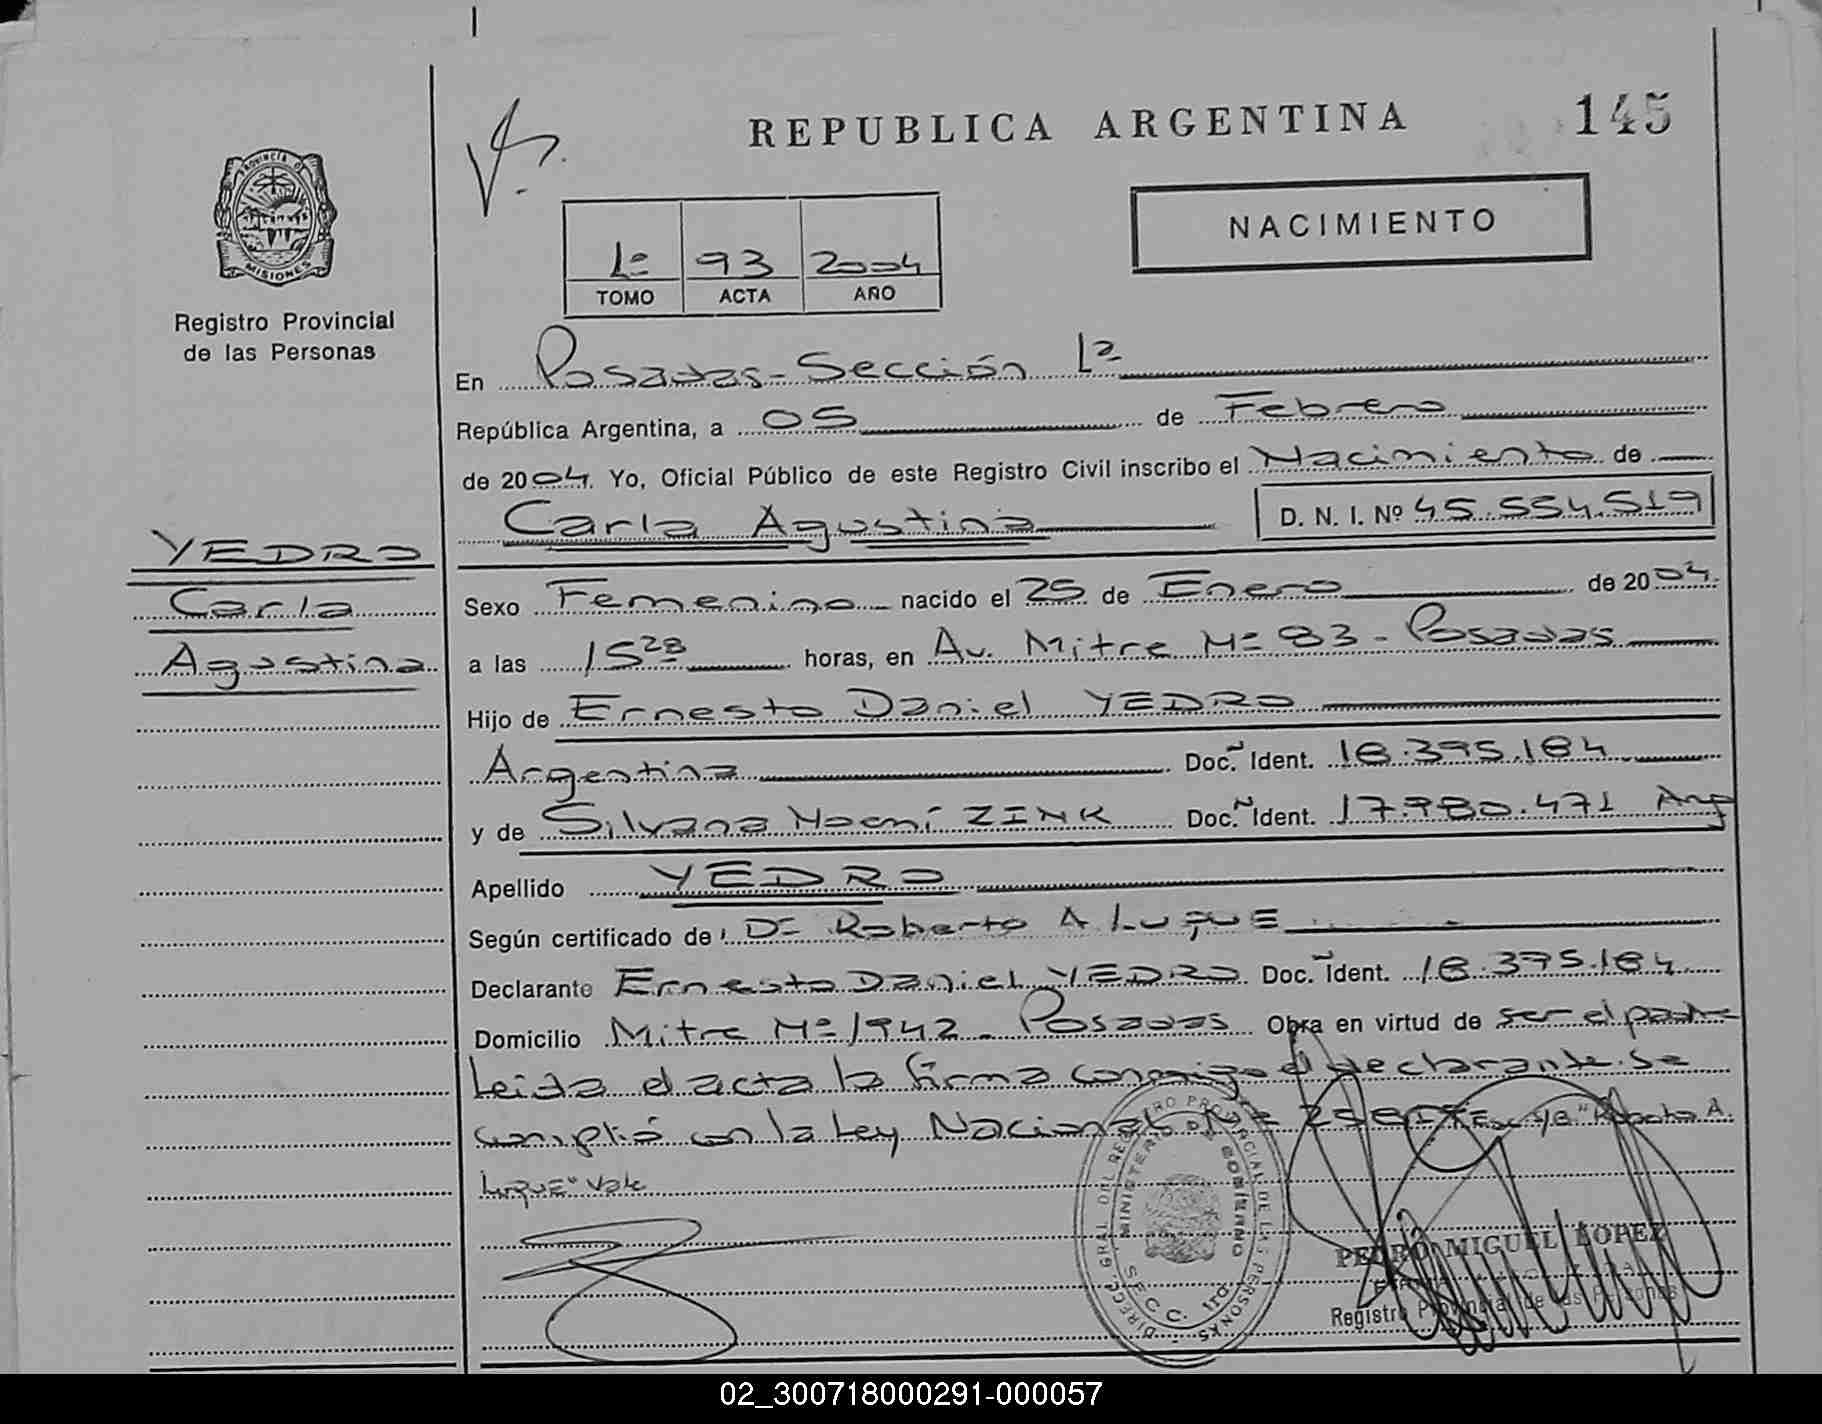 REPUBLICA ARGENTINA
145
PROVINCIA DE
MISIONES
Registro Provincial
de las Personas
NACIMIENTO
1º 93 2004
TOMO ACTA AÑO
En Posadas-Sección 1ª
República Argentina, a 05 de Febrero
de 2004. Yo, Oficial Público de este Registro Civil inscribo el Nacimiento de
Carla Agustina D. N. I. Nº 45.554.519
YEDRO
Carla
Agustina
Sexo Femenino nacido el 25 de Enero de 2004.
a las 15 28 horas, en Av. Mitre Nº 83 - Posadas
Hijo de Ernesto Daniel YEDRO
Argentina Doc. Ident. 18.395.184
y de Silvana Noemí ZINK Doc. Ident. 17.980.471 Arg
Apellido YEDRO
Según certificado de Dr Roberto A LuquE
Declarante Ernesto Daniel YEDRO Doc. Ident. 18.395.184
Domicilio Mitre Nº 1942 - Posadas Obra en virtud de ser el padre
Leida el acta la firma conmigo el declarante. Se
cumplió con la Ley Nacional Nº Esc s/b "Roberto A.
LuquE" Vale
DIRECC. GRAL. DEL REGISTRO PROVINCIAL DE LAS PERSONAS
MINISTERIO DE GOBIERNO
SECC. 1ra.
PEDRO MIGUEL LOPEZ
Registro Provincial de las Personas
02_300718000291-000057